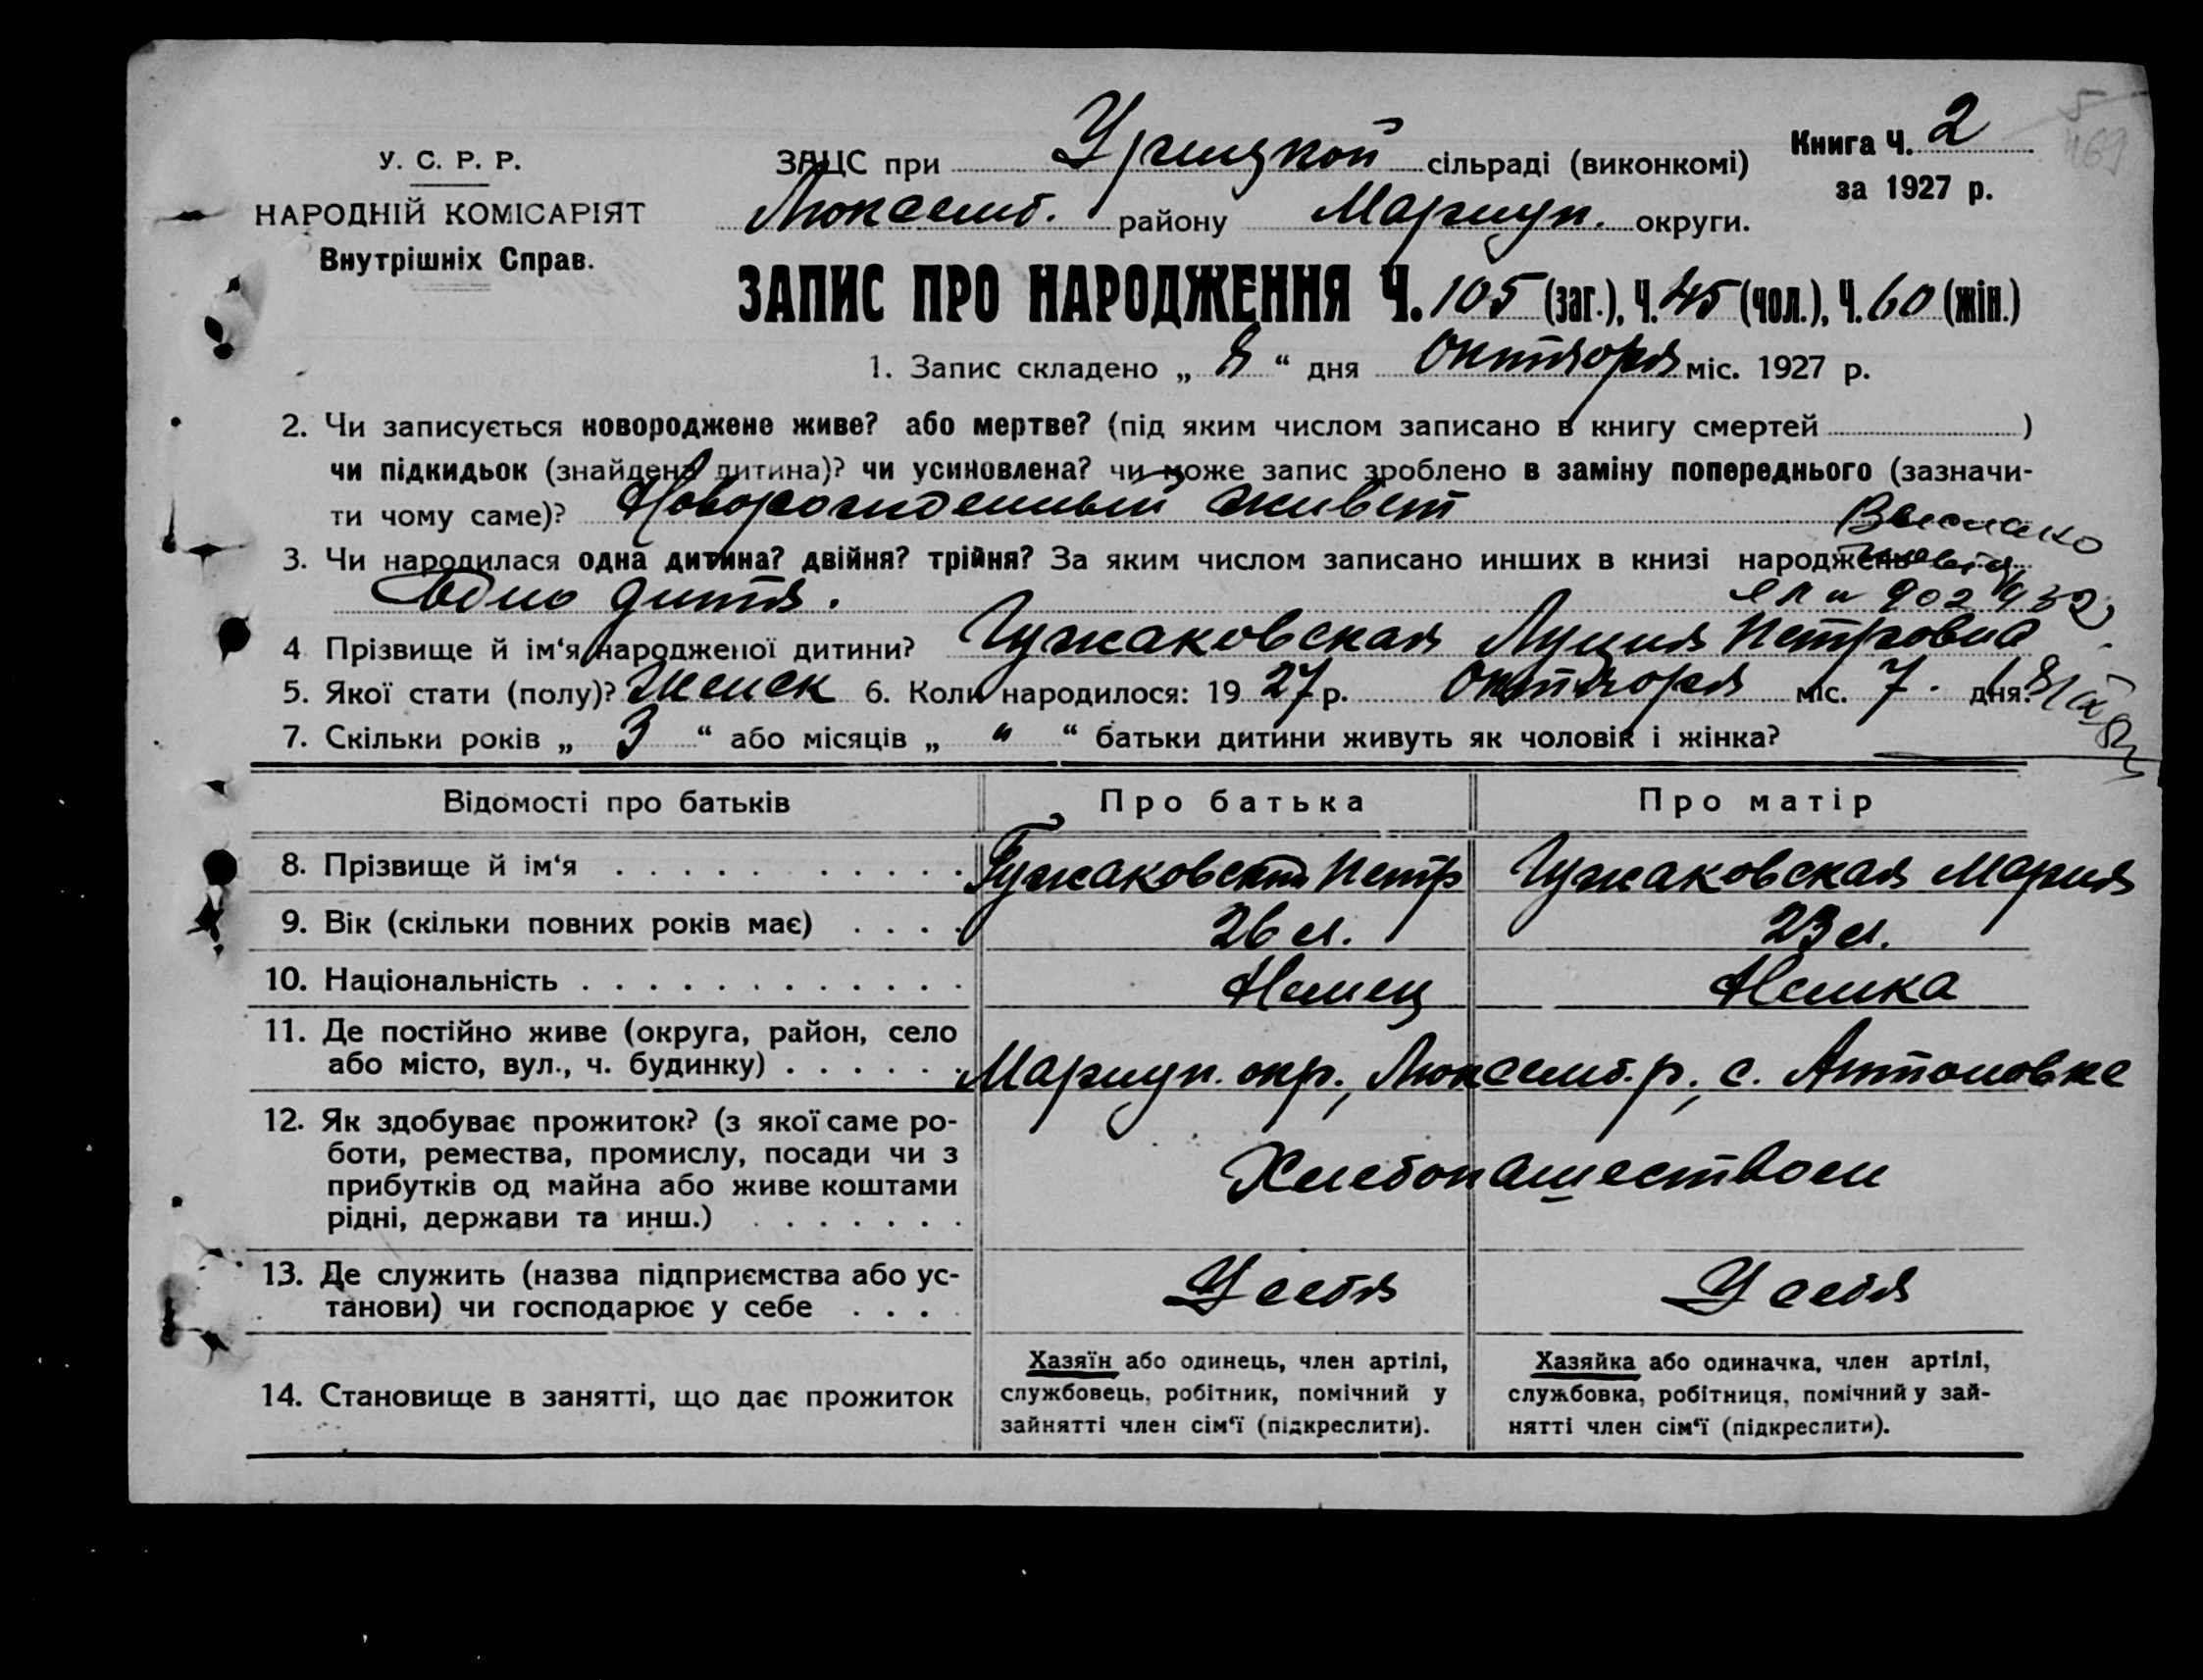 У. С. Р. Р.
НАРОДНІЙ КОМІСАРІЯТ
Внутрішніх Справ.
ЗАЦС при Урицкой сільраді (виконкомі)
Люксемб. району Мариуп. округи.
Книга Ч. 2
за 1927 р.
5
469
ЗАПИС ПРО НАРОДЖЕННЯ Ч. 105 (заг.), Ч. 45 (чол.), Ч. 60 (жін.)
1. Запис складено „ 8 “ дня Октября міс. 1927 р.
2. Чи записується новороджене живе? або мертве? (під яким числом записано в книгу смертей )
чи підкидьок (знайдена дитина)? чи усиновлена? чи може запис зроблено в заміну попереднього (зазначи-
ти чому саме)? Новорожденный живет
Выслано
3. Чи народилася одна дитина? двійня? трійня? За яким числом записано инших в книзі народжень
Одно дитя.
4 Прізвище й ім‘я народженої дитини? Гужаковская Луция Петровна
5. Якої стати (полу)? Женск 6. Коли народилося: 1927 р. Октября міс. 7. дня.
7. Скільки років „ 3 “ або місяців „ " “ батьки дитини живуть як чоловік і жінка?
Відомості про батьків Про батька Про матір
8. Прізвище й ім‘я . . . . . . . . . . . Гужаковский Петр Гужаковская Мария
9. Вік (скільки повних років має) . . . . 26 л. 23 л.
10. Національність . . . . . . . . . . . . Немец Немка
11. Де постійно живе (округа, район, село
або місто, вул., ч. будинку) . . . . . . Мариуп. окр., Люксемб. р., с. Антоновке
12. Як здобуває прожиток? (з якої саме ро-
боти, ремества, промислу, посади чи з
прибутків од майна або живе коштами
рідні, держави та инш.) . . . . . . .
Хлебопашеством
13. Де служить (назва підприємства або ус-
танови) чи господарює у себе . . . .
У себя У себя
14. Становище в занятті, що дає прожиток
Хазяїн або одинець, член артілі,
службовець, робітник, помічний у
зайнятті член сім‘ї (підкреслити).
Хазяйка або одиначка, член артілі,
службовка, робітниця, помічний у зай-
нятті член сім‘ї (підкреслити).